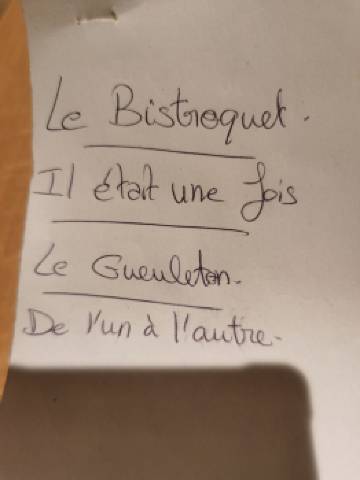 Le Bistroquet.
Il était une fois
Le Gueuleton.
De l'un à l'autre.